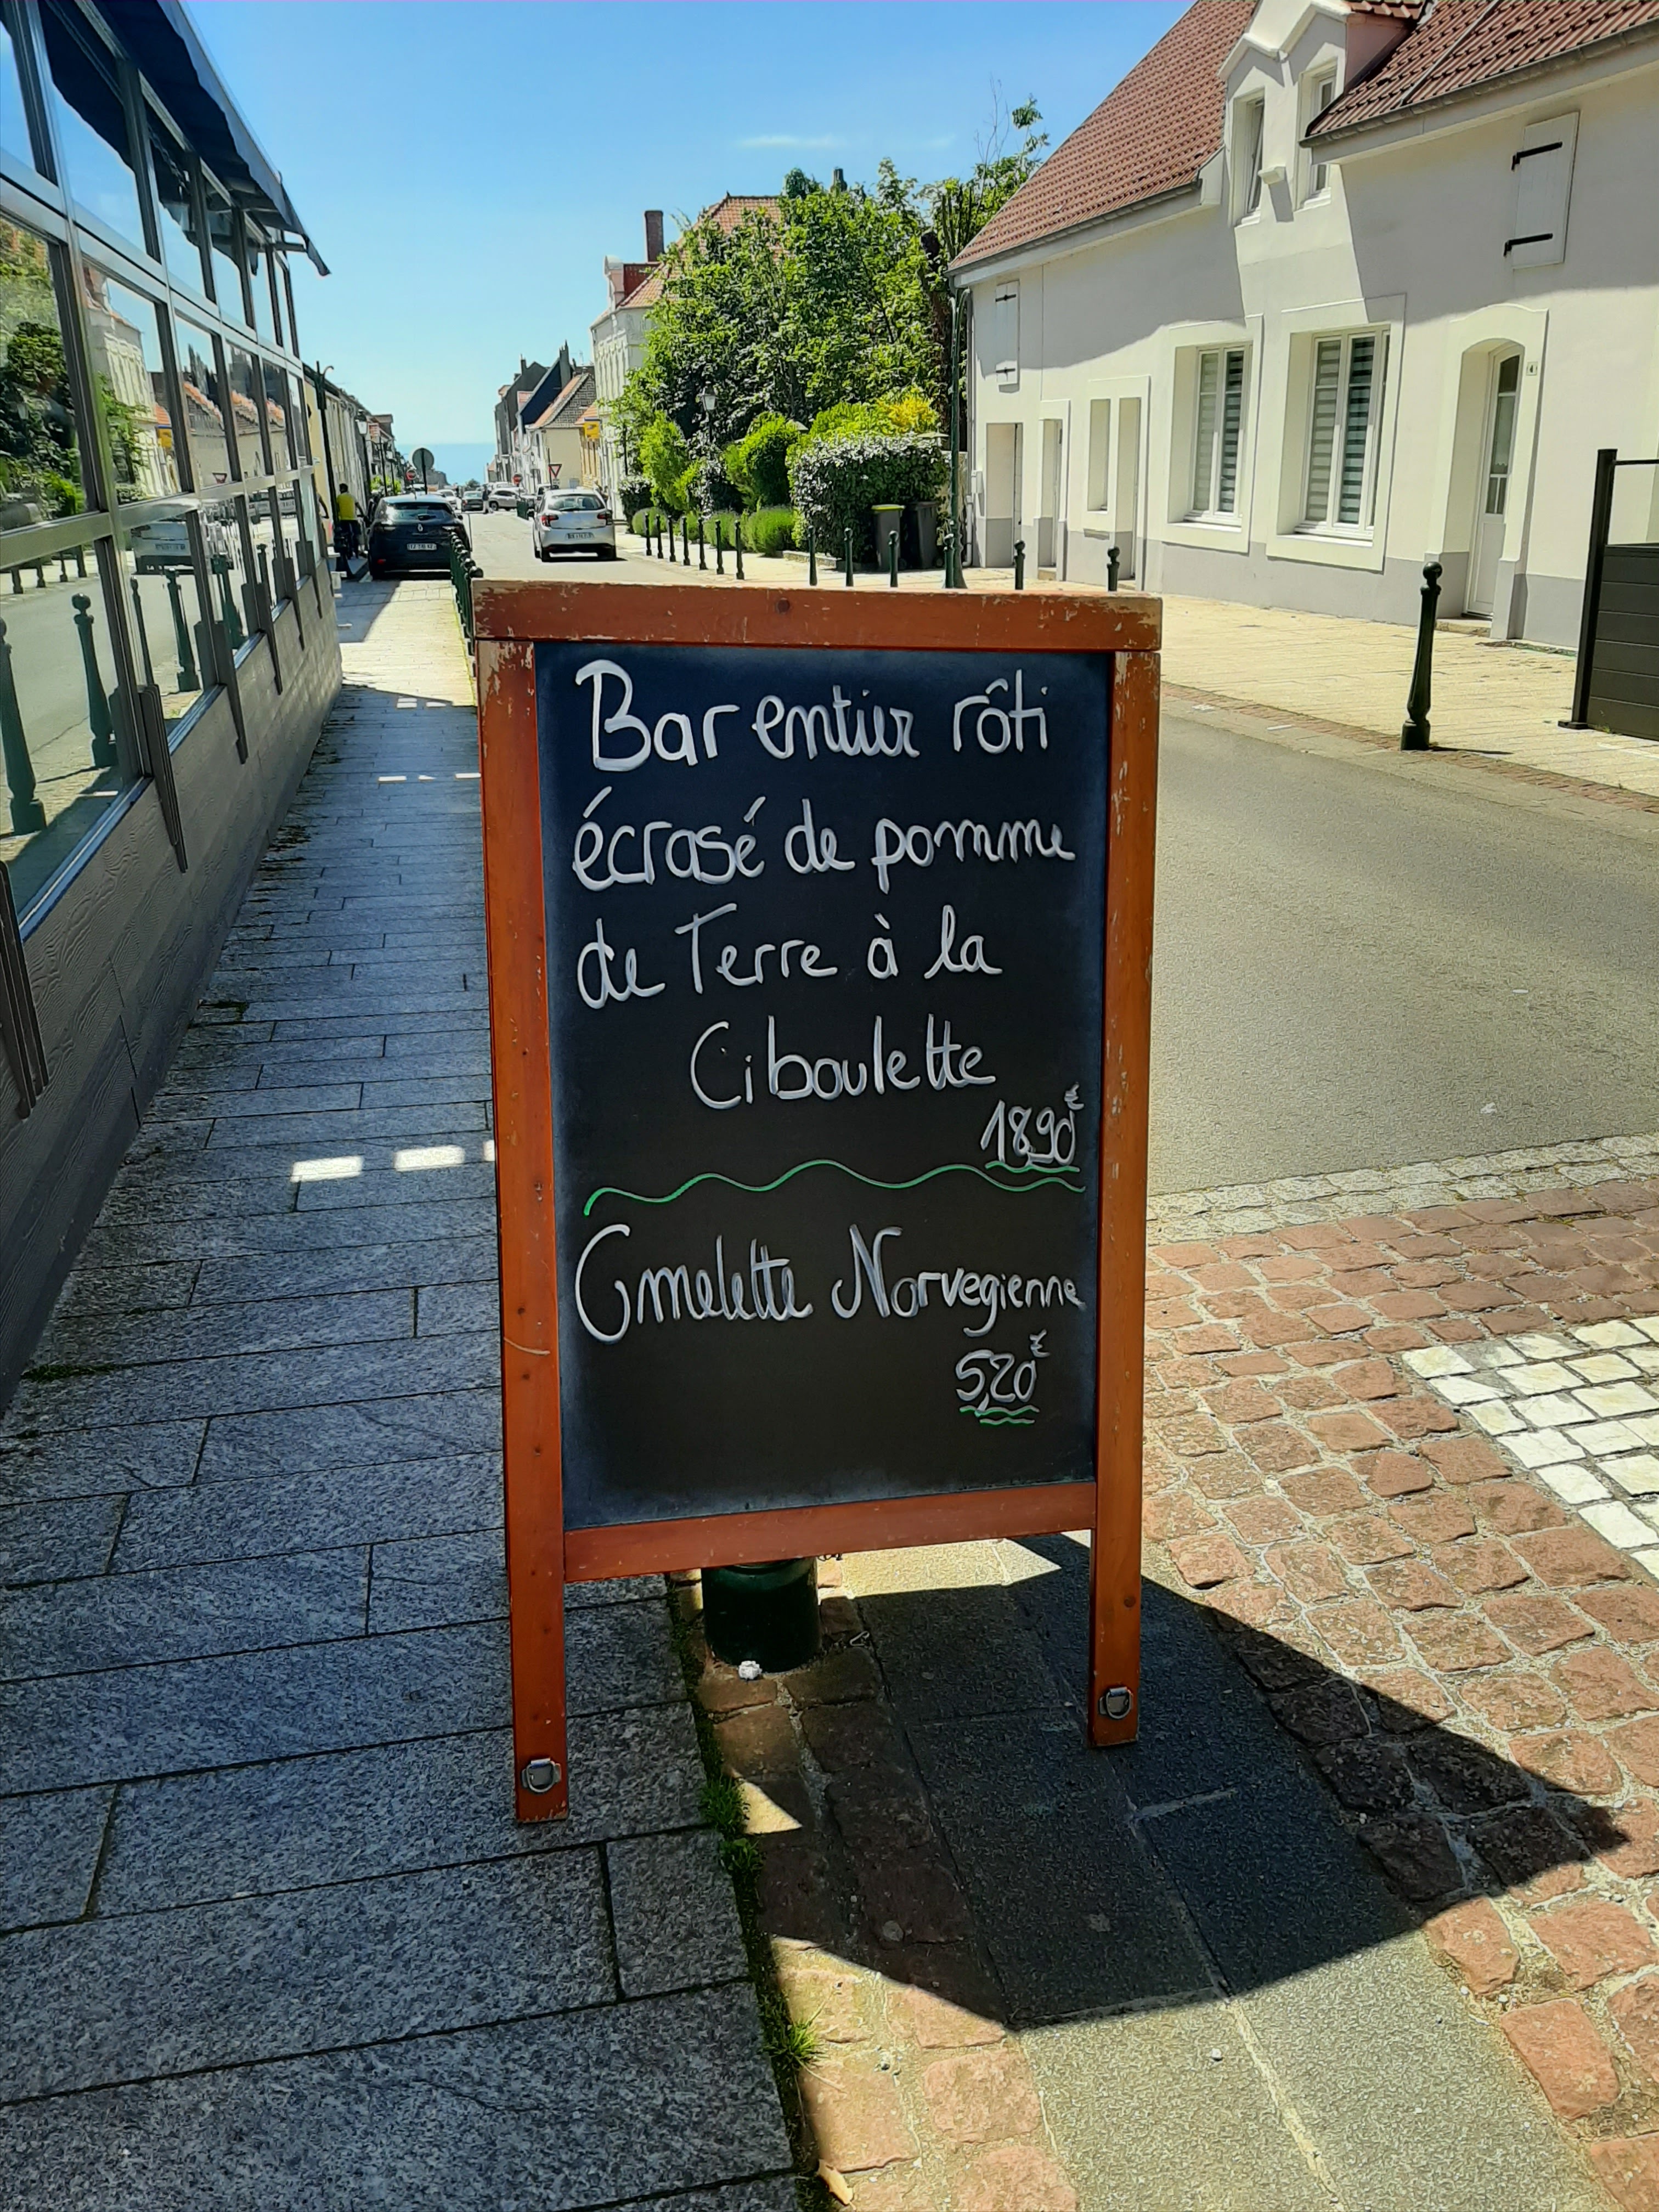 Bar entier rôti
écrasé de pomme
de Terre à la
Ciboulette
18,90€
Omelette Norvegienne
5,20€